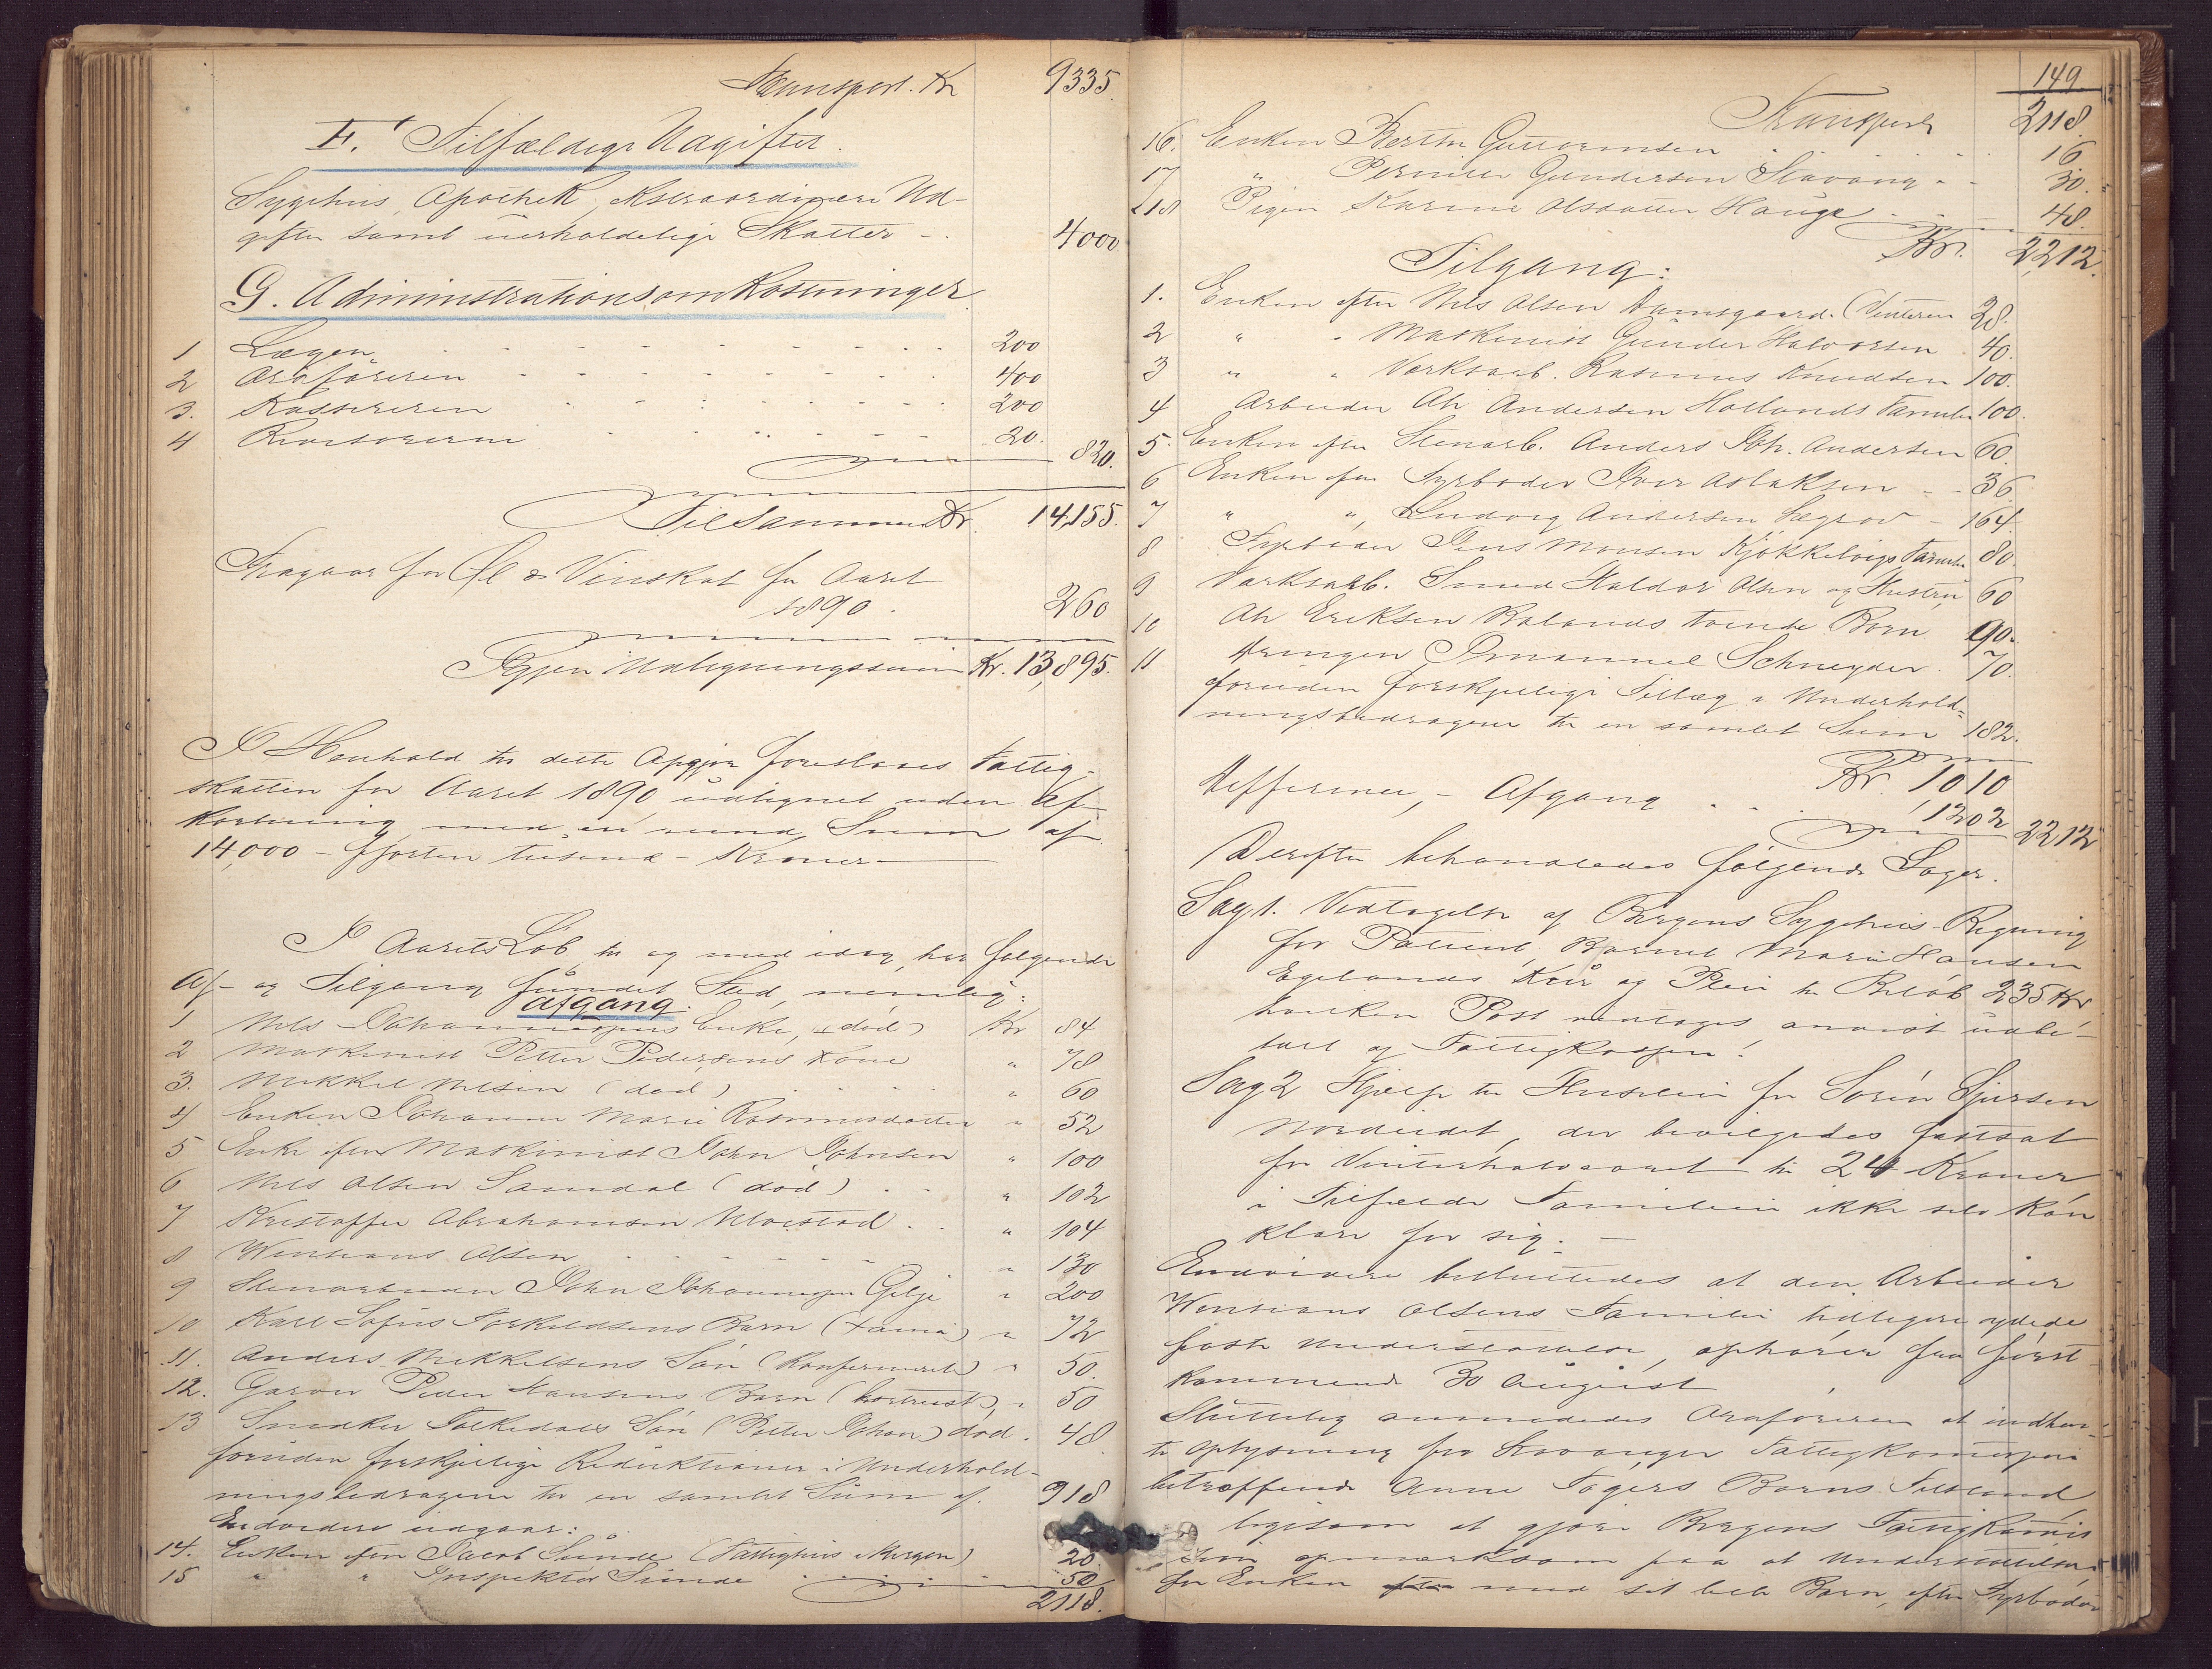 Transport. Kr 9335.
F. Tilfældige Udgifter.
Sygehus, Apothek, Extraordinære Ud-
gifter samt uerholdelige Skatter - 4000
G. Administrationsomkostninger
1 Lægen 200
2 Ordføreren 400
3. Kassereren 200
4 Revisorerne 20. 820.
Tilsammen Kr. 14,155.
Fragaar for Øl & Vinskat for Aaret
1890. 260
Igjen Udligningssum Kr. 13,895.
I Henhold til dette Opgjør foreslaaes Fattig-
skatten for Aaret 1890 udlignet uden Af-
kortning med en rund Sum af
14,000 - fjorten tusend - Kroner
I Aarets Løb til og med idag, har følgende
Af- og Tilgang fundet Sted, nemlig:
Afgang.
1 Nils Johannespens Enke, (død) Kr 84
2 Maskinist Petter Pedersens Kone " 78
3. Mikkel Nilsen (død) " 60
4 Enken Johanne Marie Rasmusdatter " 52
5 Enke efter Maskinist John Johnsen " 100
6 Nils Olsen Samdal (død) " 102
7 Kristoffer Abrahamsen " 104
8 Olsen " 130
9 John Johannesen Gilje " 200
10 Karl Sofus Torkildsens Barn " 72
11. Anders Mikkelsens Søn (Konfirmeret) " 50.
12. Garver Peder Hansens Barn (bortreist) " 50
13 Snedker Folkedals Søn (Petter Johan) død. 48.
foruden forskjellige Reduktioner i Underhold-
ningsbidragene til en samlet Sum af. 918
Endvidere udgaar:
14. Enken efter Jacob Sunde (Fattighus i Bergen) 20.
15 " " Inspektør Sunde 50
2118.
149.
Transport 2118.
16. Enken Berthe Guttormsen 16
17 " Pernille Gundersen Stavang 30.
18 Pigen Karine Olsdatter Hauge 48.
Kr. 2,212.
Tilgang:
1. Enken efter Nils Olsen Damsgaard. 28.
2 " " Maskinist Gunder Halvorsen 40.
3 " " Verksarb. Rasmus Knudsen 100.
4 Arbeider Andersen Hollands Familie 100.
5. Enken efter Stenarb. Anders Joh. Andersen 60.
6 Enken efter Fyrbøder Iver Aslaksen 36.
7 " " Ludvig Andersen 164.
8 Fyrbøder Jens Monsen Kjøkkelvigs Familie 80.
9 Værksarb. Smed Haldor Olsen og Hustru 60
10 Eriksen tvende Børn 90.
11 Drengen Immanuel Schneyder 70.
foruden forskjellige Tillæg i Underhold-
ningsbidragene til en samlet Sum 182.
Kr. 1010
Differense, - Afgang 1202 2212
Derefter behandledes følgende Sager.
Sag 1. Vedtagelse af Bergens Sygehus Regning
for Patient, Barnet Marie Hansen
Egelands Kur og Pleie til Beløb 235 Kr
hvilken Post vedtages anvist udbe-
talt af Fattigkassen!
Sag 2 Hjælp til Husleie for Sørén Sjursen
Nordeidet, der bevilgedes fastsat
for Vinterhalvaaret til 24 Kroner
i Tilfælde Familien ikke selv kan
klare for sig. -
Endvidere besluttedes at den Arbeider
Olsens Familie tidligere ydede
faste Understøttelse, ophører fra først
kommende 30 August
Sluttelig anmodedes Ordføreren at indhen-
te Oplysning fra Stavanger Fattigkommission
betræffende Anne Børns Tilstand,
ligesom at gjøre Bergens Fattigkommis
sion opmærksom paa at Understøttelsen
for Enken med sit lille Barn, efter Fyrbøder